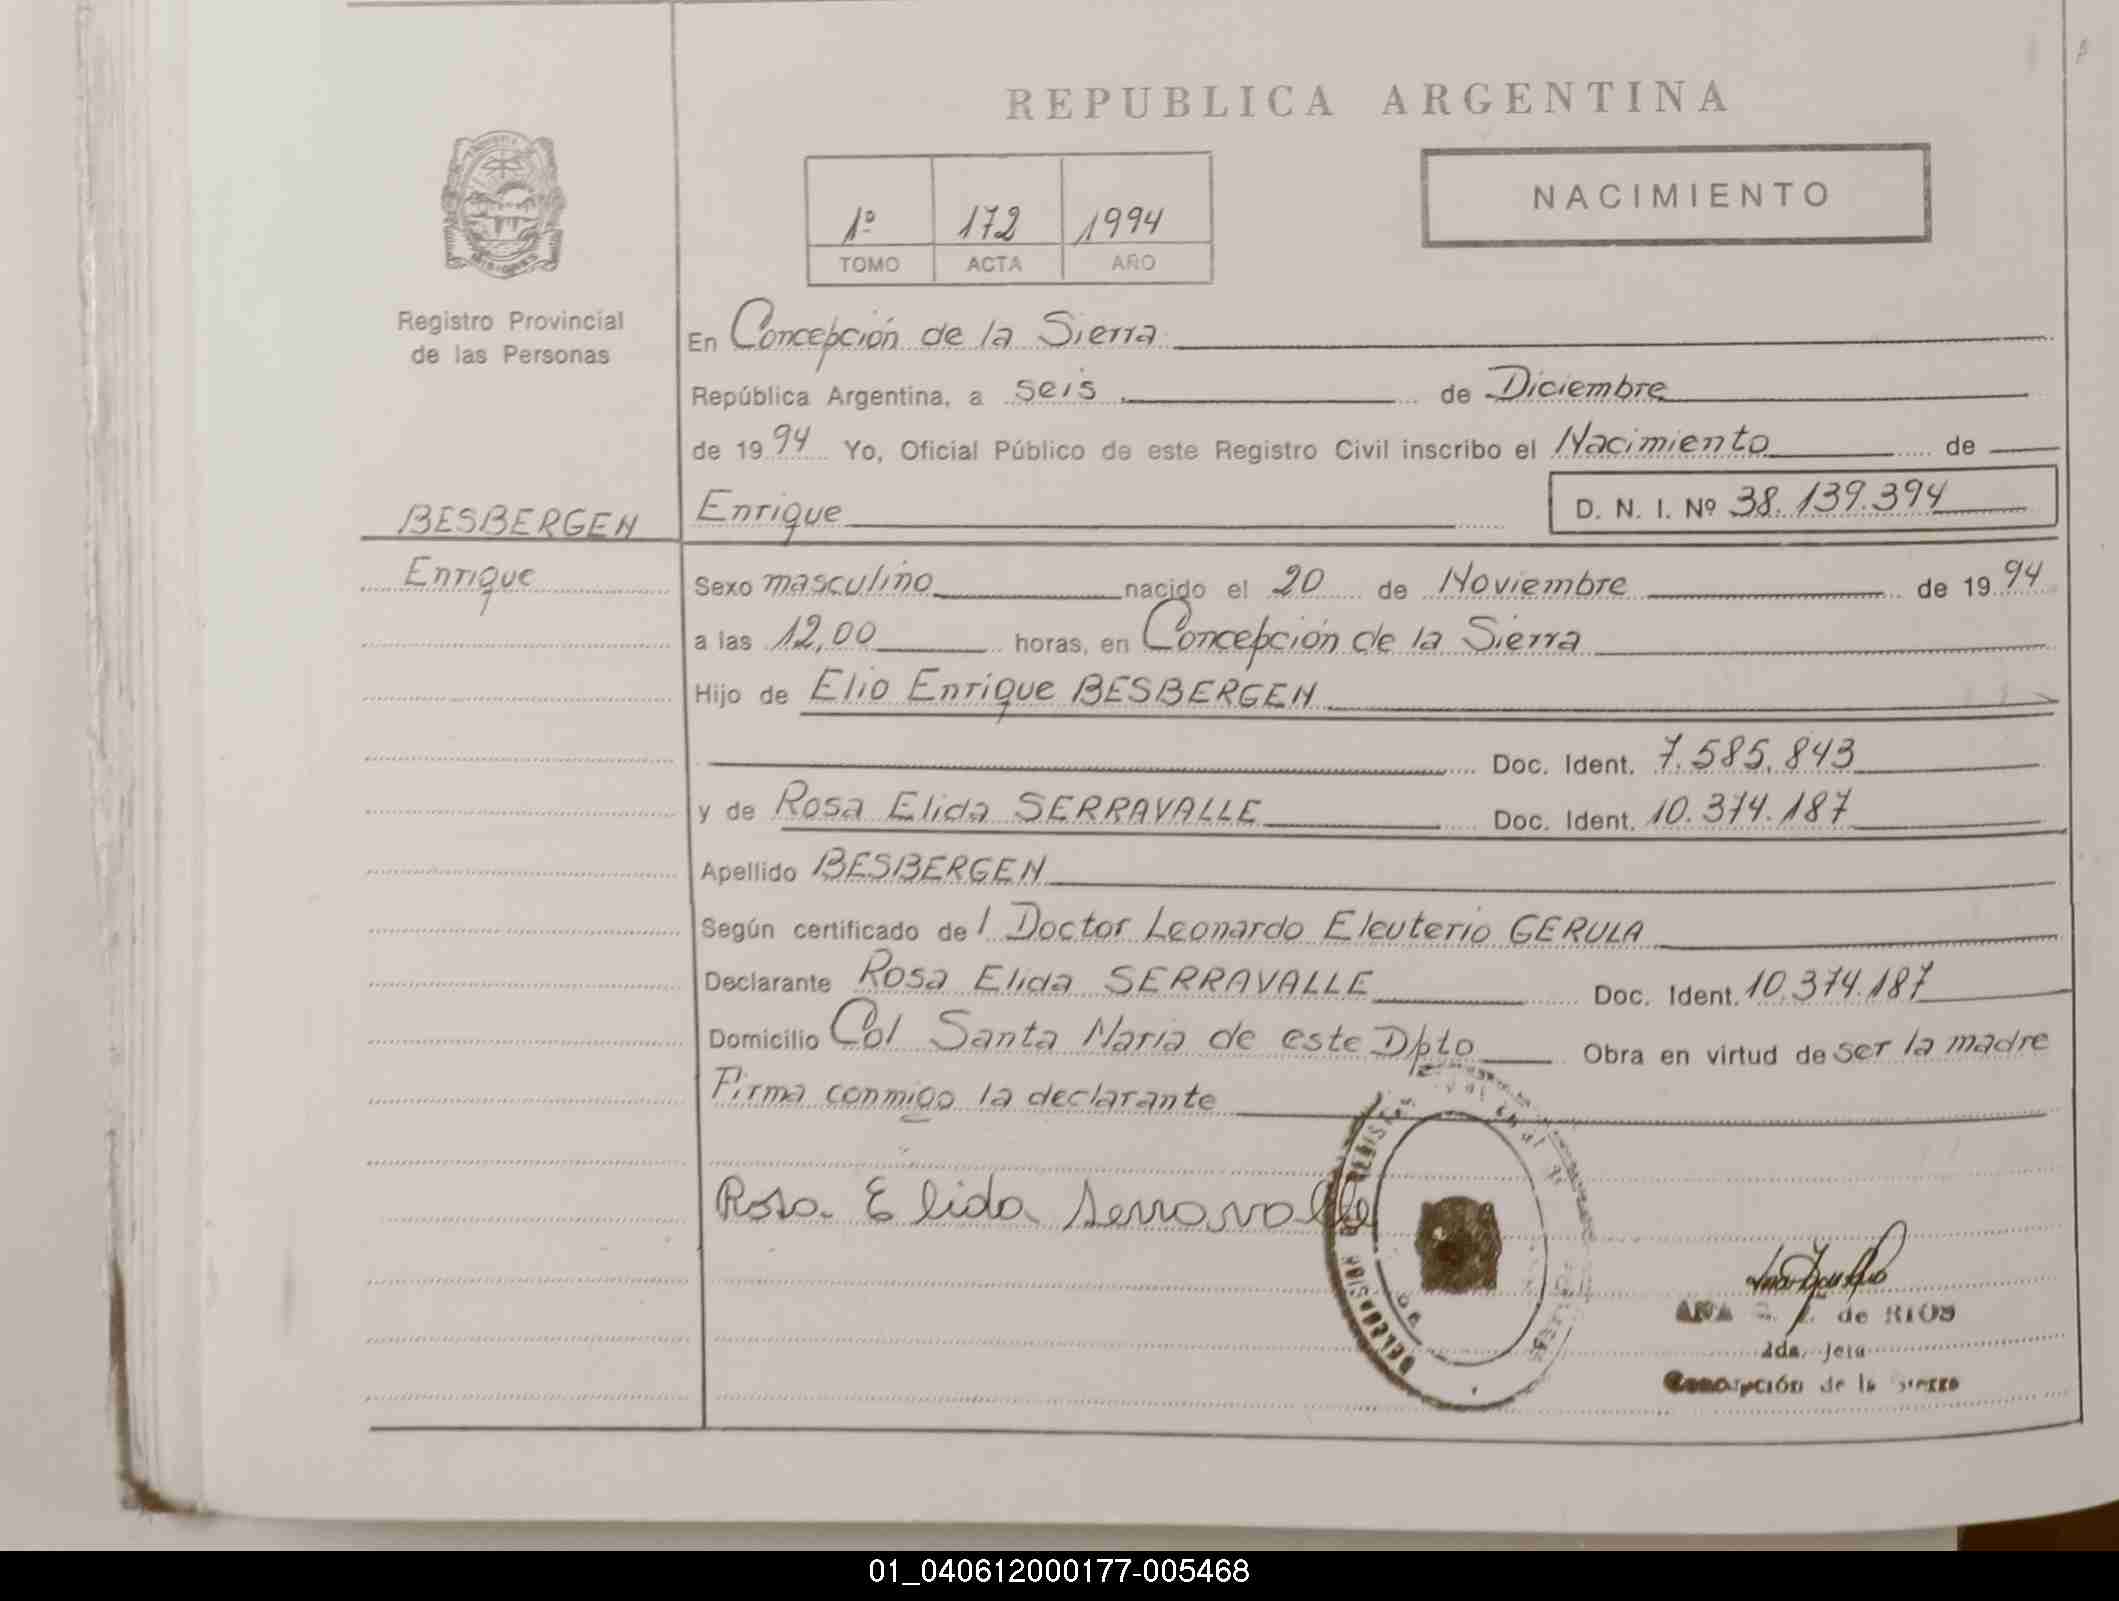 REPUBLICA ARGENTINA
NACIMIENTO
1º 172 1994
TOMO ACTA AÑO
Registro Provincial
de las Personas
En Concepción de la Sierra
República Argentina, a seis de Diciembre
de 1994 Yo, Oficial Público de este Registro Civil inscribo el Nacimiento de
BESBERGEN
Enrique
Enrique D. N. I. Nº 38.139.394
Sexo masculino nacido el 20 de Noviembre de 1994
a las 12,00 horas, en Concepción de la Sierra
Hijo de Elio Enrique BESBERGEN
Doc. Ident. 7.585.843
y de Rosa Elida SERRAVALLE Doc. Ident. 10.374.187
Apellido BESBERGEN
Según certificado del Doctor Leonardo Eleuterio GERULA
Declarante Rosa Elida SERRAVALLE Doc. Ident. 10.374.187
Domicilio Col Santa Maria de este Dpto Obra en virtud de ser la madre
Firma conmigo la declarante
Rosa Elida Serravalle
DELEGASION
ANA de RIOS
Concepción de la Sierra
01_040612000177-005468